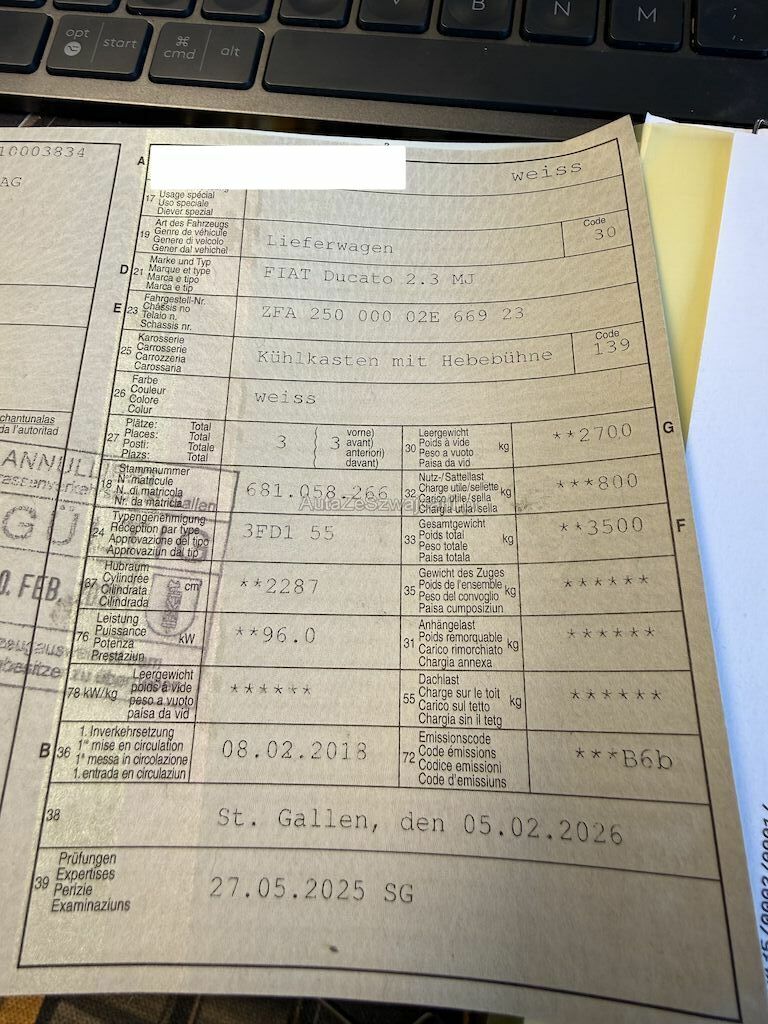 B
N
M
;
,
opt
start
⌘
cmd
alt
10003834
AG
A
weiss
17 Usage spécial
Uso speciale
Diever spezial
19 Art des Fahrzeugs
Genre de véhicule
Genere di veicolo
Gener dal vehichel
Lieferwagen
Code
30
D 21 Marke und Typ
Marque et type
Marca e tipo
Marca e tip
FIAT Ducato 2.3 MJ
E 23 Fahrgestell-Nr.
Châssis no
Telaio n.
Schassis nr.
ZFA 250 000 02E 669 23
25 Karosserie
Carrosserie
Carrozzeria
Carossaria
Kühlkasten mit Hebebühne
Code
139
26 Farbe
Couleur
Colore
Colur
weiss
27 Plätze: Total
Places: Total
Posti: Totale
Plazs: Total
3 { 3
vorne)
avant)
anteriori)
davant)
30 Leergewicht
Poids à vide
Peso a vuoto
Paisa da vid
kg
**2700
G
18 Stammnummer
N° matricule
N. di matricola
Nr. da matricla
681.058.266
32 Nutz-/Sattellast
Charge utile/sellette
Carico utile/sella
Chargia utila/sella
kg
***800
24 Typengenehmigung
Réception par type
Approvazione del tipo
Approvaziun dal tip
3FD1 55
33 Gesamtgewicht
Poids total
Peso totale
Paisa totala
kg
**3500
F
37 Hubraum
Cylindrée
Cilindrata
Cilindrada
cm³
**2287
35 Gewicht des Zuges
Poids de l'ensemble
Peso del convoglio
Paisa cumposiziun
kg
******
76 Leistung
Puissance
Potenza
Prestaziun
kW
**96.0
31 Anhängelast
Poids remorquable
Carico rimorchiato
Chargia annexa
kg
******
78 kW/kg
Leergewicht
poids à vide
peso a vuoto
paisa da vid
******
55 Dachlast
Charge sur le toit
Carico sul tetto
Chargia sin il tetg
kg
******
B 36 1. Inverkehrsetzung
1re mise en circulation
1a messa in circolazione
1. entrada en circulaziun
08.02.2018
72 Emissionscode
Code émissions
Codice emissioni
Code d'emissiuns
***B6b
38
St. Gallen, den 05.02.2026
39 Prüfungen
Expertises
Perizie
Examinaziuns
27.05.2025 SG
chantunalas
da l'autoritad
ANNULL
Gallen
GÜ
0. FEB.